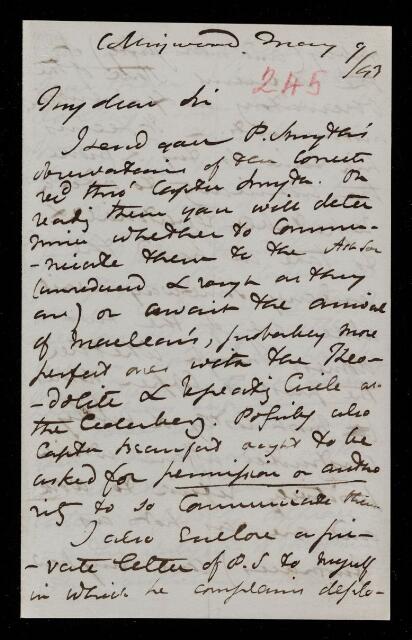 Collingwood. May 9
/43
245
My dear Sir
I send you P. Smyth's
observations of the Comet
recd thro' Captn Smyth. On
reading them you will deter
mine whether to Commu-
-nicate them to the Ast Soc
(unreduced & rough as they
are) or await the arrival
of Maclear's, probably more
perfect ones with the Theo-
-dolite & Repeating Circle at
the Cederberg. Possibly also
Captn Beaufort ought to be
asked for permission or autho
rity to so Communicate them
I also enclose a pri-
-vate letter of P.S. to myself
in which he complains deplo-